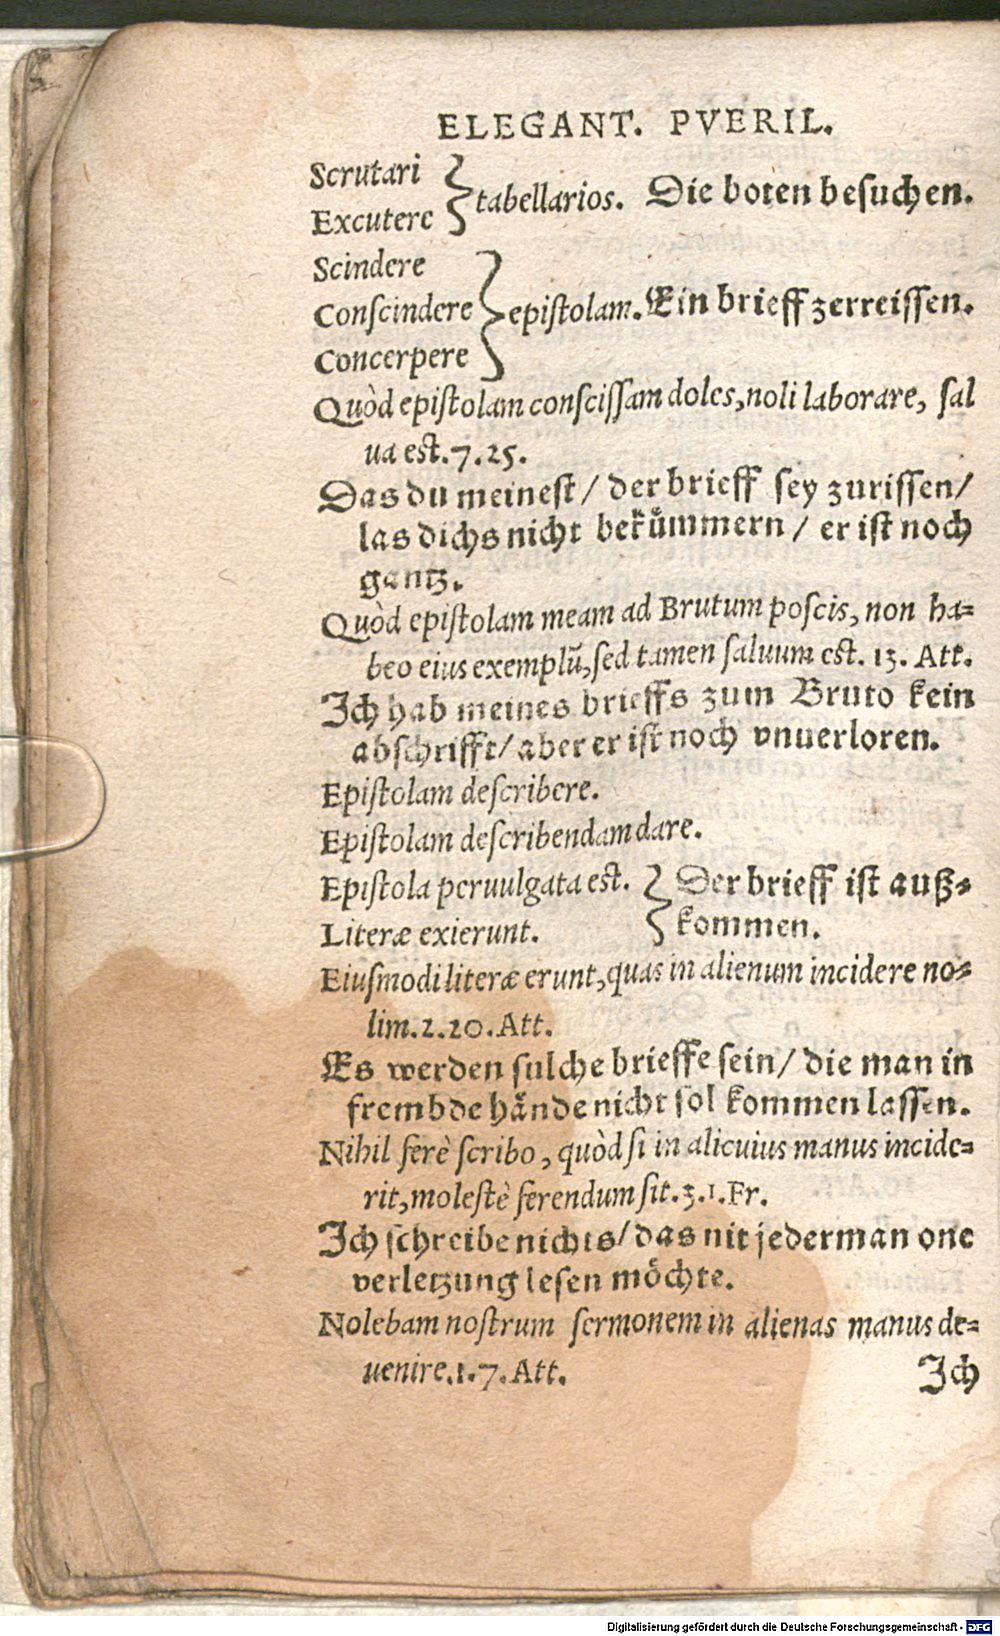 ELEGANT. PVERIL.
Scrutari
Excutere } tabellarios. Die boten besuchen.
Scindere
Conſcindere } epiſtolam. Ein brieff zerreiſſen.
Concerpere
Quòd epiſtolam conſciſſam doles, noli laborare, ſal
ua eſt. 7. 25.
Das du meineſt / der brieff ſey zuriſſen /
las dichs nicht bekümmern / er iſt noch
gantz.
Quòd epiſtolam meam ad Brutum poſcis, non ha-
beo eius exemplũ, ſed tamen ſaluum eſt. 13. Att.
Ich hab meines brieffs zum Bruto kein
abſchrifft / aber er iſt noch vnuerloren.
Epiſtolam deſcribere.
Epiſtolam deſcribendam dare.
Epiſtola peruulgata eſt. } Der brieff iſt auß-
Literæ exierunt. } kommen.
Eiuſmodi literæ erunt, quas in alienum incidere no-
lim. 2. 20. Att.
Es werden ſulche brieffe ſein / die man in
frembde hände nicht ſol kommen laſſen.
Nihil ferè ſcribo, quòd ſi in alicuius manus incide-
rit, moleſtè ferendum ſit. 3. 1. Fr.
Ich ſchreibe nichts / das nit jederman one
verletzung leſen möchte.
Nolebam noſtrum ſermonem in alienas manus de-
uenire. 1. 7. Att.
Ich
Digitalisierung gefördert durch die Deutsche Forschungsgemeinschaft - DFG